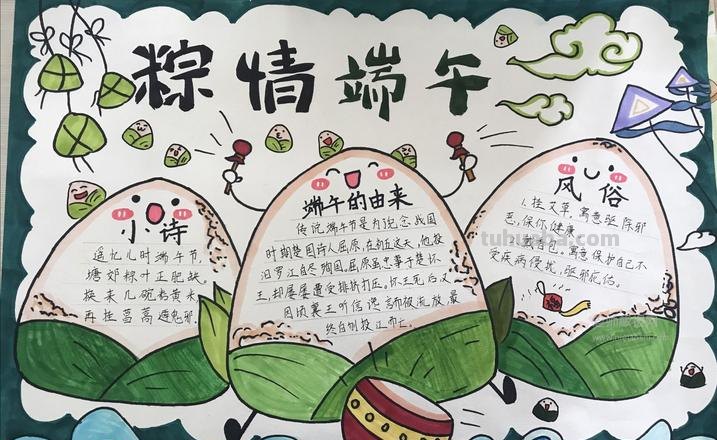 粽情端午
小诗
遥忆儿时端午节,
塘郊粽叶正肥缺.
换来几碗
再挂菖蒿避鬼邪.
端午的由来
传说端午节是为纪念战国
时期楚国诗人屈原,在初五这天,他投
汨罗江自尽殉国。屈原虽忠事于楚怀
王,却屡屡遭受排挤打压。怀王死后又
因顷襄王听信谗而被流放,最
终自刎投江而亡。
风俗
1.挂艾草,寓意驱除邪
恶,保你健康
戴香包,寓意保护自己不
受疾病侵扰,驱邪庇佑。
tuhuaba.com